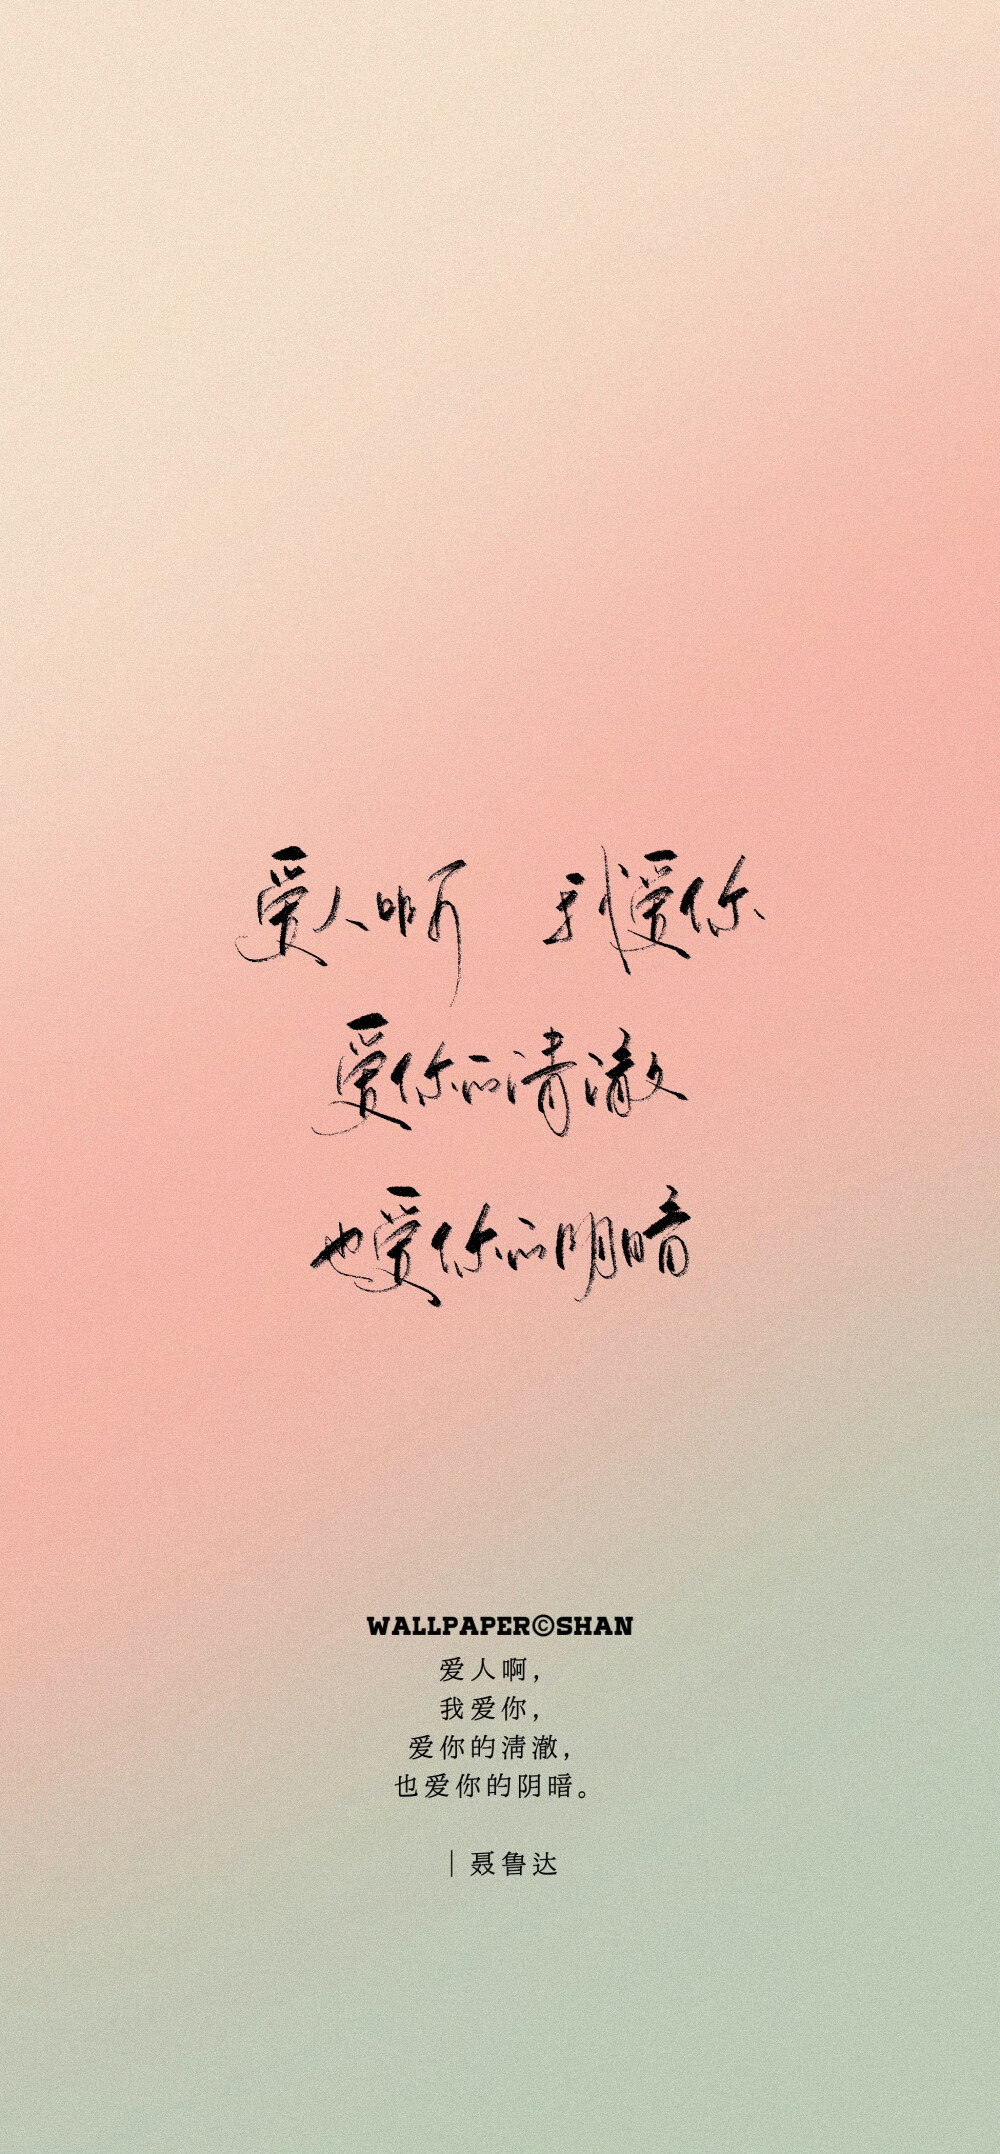 爱人啊 我爱你
爱你的清澈
也爱你的阴暗
WALLPAPER©SHAN
爱人啊，
我爱你，
爱你的清澈，
也爱你的阴暗。
｜聂鲁达